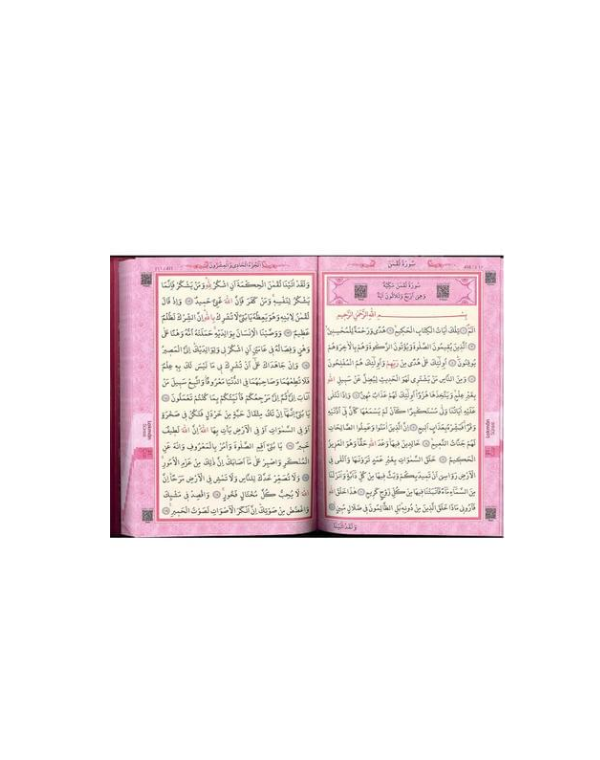 سُورَةُ لُقْمٰنَ
سُورَةُ لُقْمٰنَ مَكِّيَّةٌ
وَهِىَ اَرْبَعٌ وَثَلَاثُونَ اٰيَةً
بِسْمِ اللّٰهِ الرَّحْمٰنِ الرَّحِيمِ
الٓمٓ تِلْكَ اٰيَاتُ الْكِتَابِ الْحَكِيمِ هُدًى وَرَحْمَةً لِلْمُحْسِنِينَ
اَلَّذِينَ يُقِيمُونَ الصَّلٰوةَ وَيُؤْتُونَ الزَّكٰوةَ وَهُمْ بِالْاٰخِرَةِ هُمْ
يُوقِنُونَ اُولٰئِكَ عَلٰى هُدًى مِنْ رَبِّهِمْ وَاُولٰئِكَ هُمُ الْمُفْلِحُونَ
وَمِنَ النَّاسِ مَنْ يَشْتَرِى لَهْوَ الْحَدِيثِ لِيُضِلَّ عَنْ سَبِيلِ اللّٰهِ
بِغَيْرِ عِلْمٍ وَيَتَّخِذَهَا هُزُوًا اُولٰئِكَ لَهُمْ عَذَابٌ مُهِينٌ وَاِذَا تُتْلٰى
عَلَيْهِ اٰيَاتُنَا وَلّٰى مُسْتَكْبِرًا كَاَنْ لَمْ يَسْمَعْهَا كَاَنَّ فِى اُذُنَيْهِ
وَقْرًا فَبَشِّرْهُ بِعَذَابٍ اَلِيمٍ اِنَّ الَّذِينَ اٰمَنُوا وَعَمِلُوا الصَّالِحَاتِ
لَهُمْ جَنَّاتُ النَّعِيمِ خَالِدِينَ فِيهَا وَعْدَ اللّٰهِ حَقًّا وَهُوَ الْعَزِيزُ
الْحَكِيمُ خَلَقَ السَّمٰوَاتِ بِغَيْرِ عَمَدٍ تَرَوْنَهَا وَاَلْقٰى فِى
الْاَرْضِ رَوَاسِىَ اَنْ تَمِيدَ بِكُمْ وَبَثَّ فِيهَا مِنْ كُلِّ دَابَّةٍ وَاَنْزَلْنَا
مِنَ السَّمَاءِ مَاءً فَاَنْبَتْنَا فِيهَا مِنْ كُلِّ زَوْجٍ كَرِيمٍ هٰذَا خَلْقُ اللّٰهِ
فَاَرُونِى مَاذَا خَلَقَ الَّذِينَ مِنْ دُونِهِ بَلِ الظَّالِمُونَ فِى ضَلَالٍ مُبِينٍ
وَلَقَدْ اٰتَيْنَا
اَلْجُزْءُ الْحَادِى وَالْعِشْرُونَ
وَلَقَدْ اٰتَيْنَا لُقْمٰنَ الْحِكْمَةَ اَنِ اشْكُرْ لِلّٰهِ وَمَنْ يَشْكُرْ فَاِنَّمَا
يَشْكُرُ لِنَفْسِهِ وَمَنْ كَفَرَ فَاِنَّ اللّٰهَ غَنِىٌّ حَمِيدٌ وَاِذْ قَالَ
لُقْمٰنُ لِابْنِهِ وَهُوَ يَعِظُهُ يَا بُنَىَّ لَا تُشْرِكْ بِاللّٰهِ اِنَّ الشِّرْكَ لَظُلْمٌ
عَظِيمٌ وَوَصَّيْنَا الْاِنْسَانَ بِوَالِدَيْهِ حَمَلَتْهُ اُمُّهُ وَهْنًا عَلٰى
وَهْنٍ وَفِصَالُهُ فِى عَامَيْنِ اَنِ اشْكُرْ لِى وَلِوَالِدَيْكَ اِلَىَّ الْمَصِيرُ
وَاِنْ جَاهَدَاكَ عَلٰى اَنْ تُشْرِكَ بِى مَا لَيْسَ لَكَ بِهِ عِلْمٌ
فَلَا تُطِعْهُمَا وَصَاحِبْهُمَا فِى الدُّنْيَا مَعْرُوفًا وَاتَّبِعْ سَبِيلَ مَنْ
اَنَابَ اِلَىَّ ثُمَّ اِلَىَّ مَرْجِعُكُمْ فَاُنَبِّئُكُمْ بِمَا كُنْتُمْ تَعْمَلُونَ
يَا بُنَىَّ اِنَّهَا اِنْ تَكُ مِثْقَالَ حَبَّةٍ مِنْ خَرْدَلٍ فَتَكُنْ فِى صَخْرَةٍ
اَوْ فِى السَّمٰوَاتِ اَوْ فِى الْاَرْضِ يَأْتِ بِهَا اللّٰهُ اِنَّ اللّٰهَ لَطِيفٌ
خَبِيرٌ يَا بُنَىَّ اَقِمِ الصَّلٰوةَ وَأْمُرْ بِالْمَعْرُوفِ وَانْهَ عَنِ
الْمُنْكَرِ وَاصْبِرْ عَلٰى مَا اَصَابَكَ اِنَّ ذٰلِكَ مِنْ عَزْمِ الْاُمُورِ
وَلَا تُصَعِّرْ خَدَّكَ لِلنَّاسِ وَلَا تَمْشِ فِى الْاَرْضِ مَرَحًا اِنَّ
اللّٰهَ لَا يُحِبُّ كُلَّ مُخْتَالٍ فَخُورٍ وَاقْصِدْ فِى مَشْيِكَ
وَاغْضُضْ مِنْ صَوْتِكَ اِنَّ اَنْكَرَ الْاَصْوَاتِ لَصَوْتُ الْحَمِيرِ